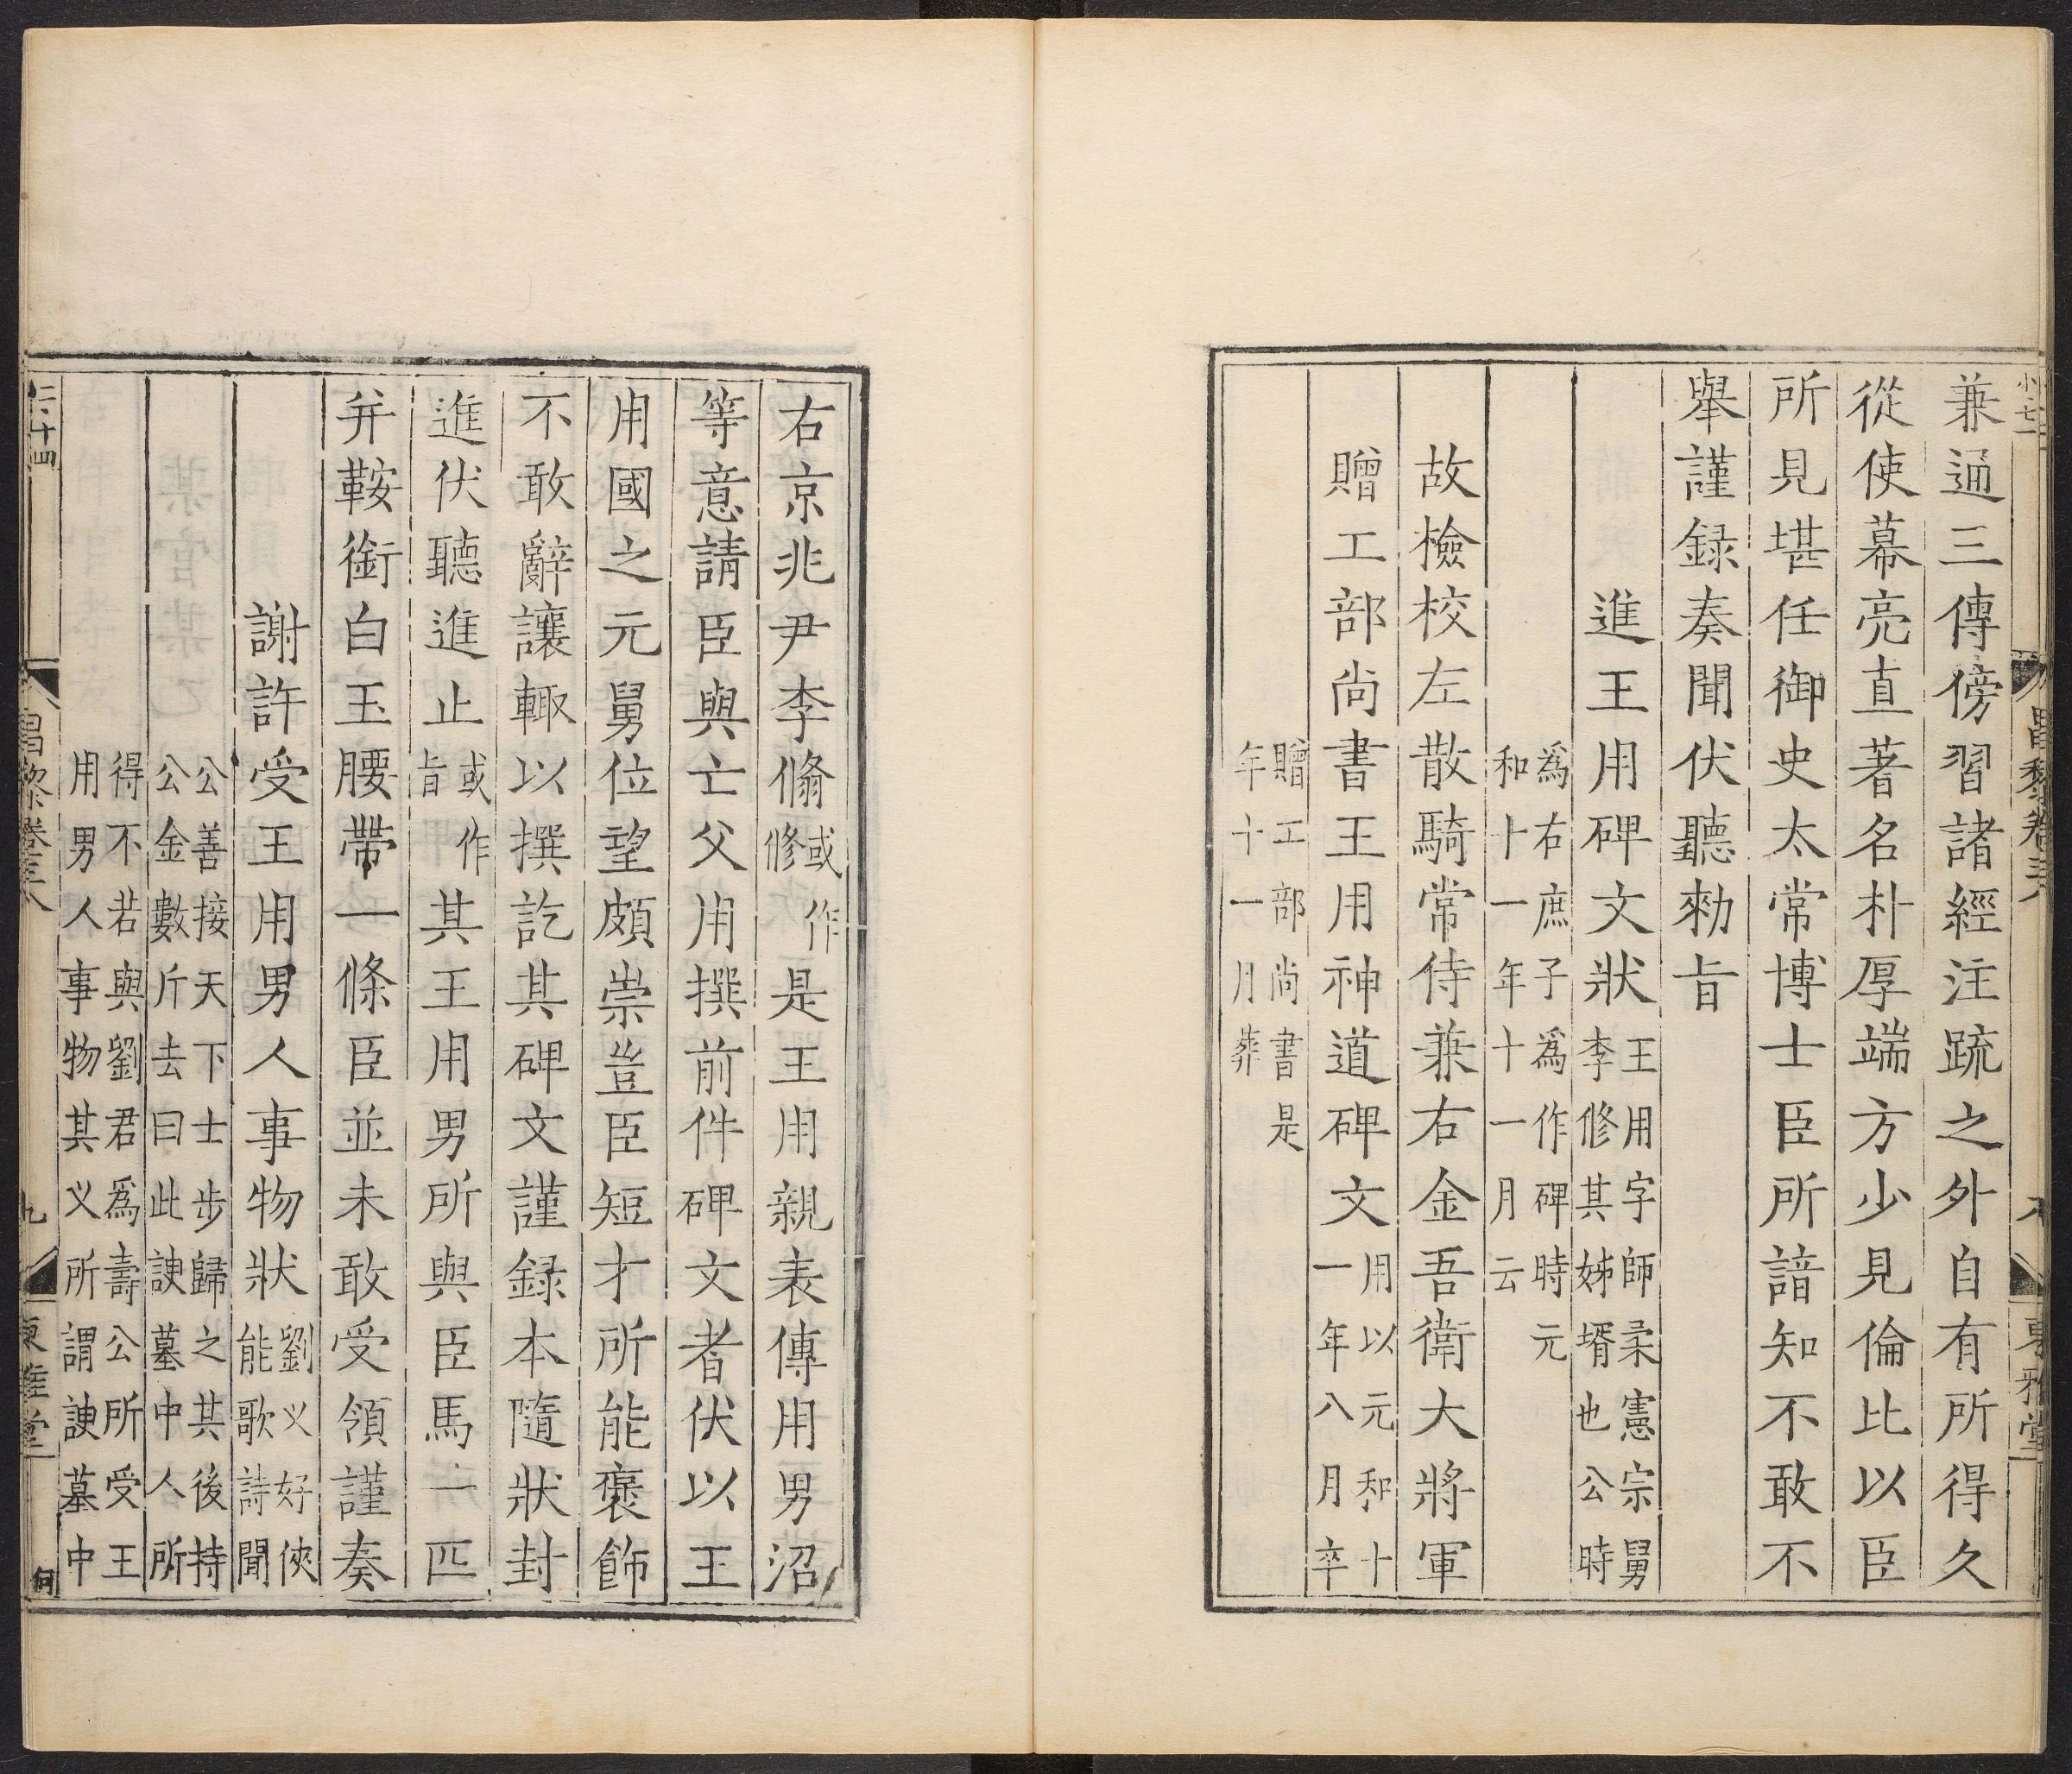 兼通三傳傍習諸經注疏之外自有所得久
從使幕亮直著名朴厚端方少見倫比以臣
所見堪任御史太常博士臣所諳知不敢不
舉謹録奏聞伏聽勑旨
進王用碑文狀王用字師柔憲宗舅
李修其姊壻也公時
爲右庶子爲作碑時元
和十一年十一月云
故檢校左散騎常侍兼右金吾衛大將軍
贈工部尚書王用神道碑文用以元和十
一年八月卒
贈工部尚書是
年十一月葬
右京兆尹李翛或作
修是王用親表傳用男沼
等意請臣與亡父用撰前件碑文者伏以王
用國之元舅位望頗崇豈臣短才所能褒飾
不敢辭讓輙以撰訖其碑文謹録本隨狀封
進伏聽進止或作
旨其王用男所與臣馬一匹
并鞍銜白玉腰帶一條臣並未敢受領謹奏
謝許受王用男人事物狀劉义好俠
能歌詩聞
公善接天下士步歸之其後持
公金數斤去曰此諛墓中人所
得不若與劉君爲壽公所受王
用男人事物其义所謂諛墓中
昌黎卷三十八
九
東雅堂
何